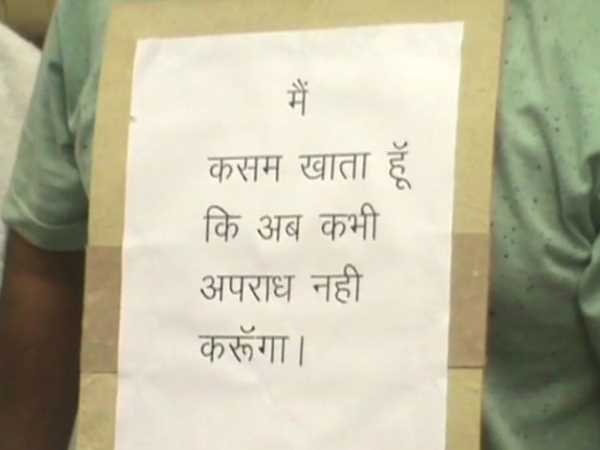 मैं
कसम खाता हूॅं
कि अब कभी
अपराध नही
करूॅंगा।